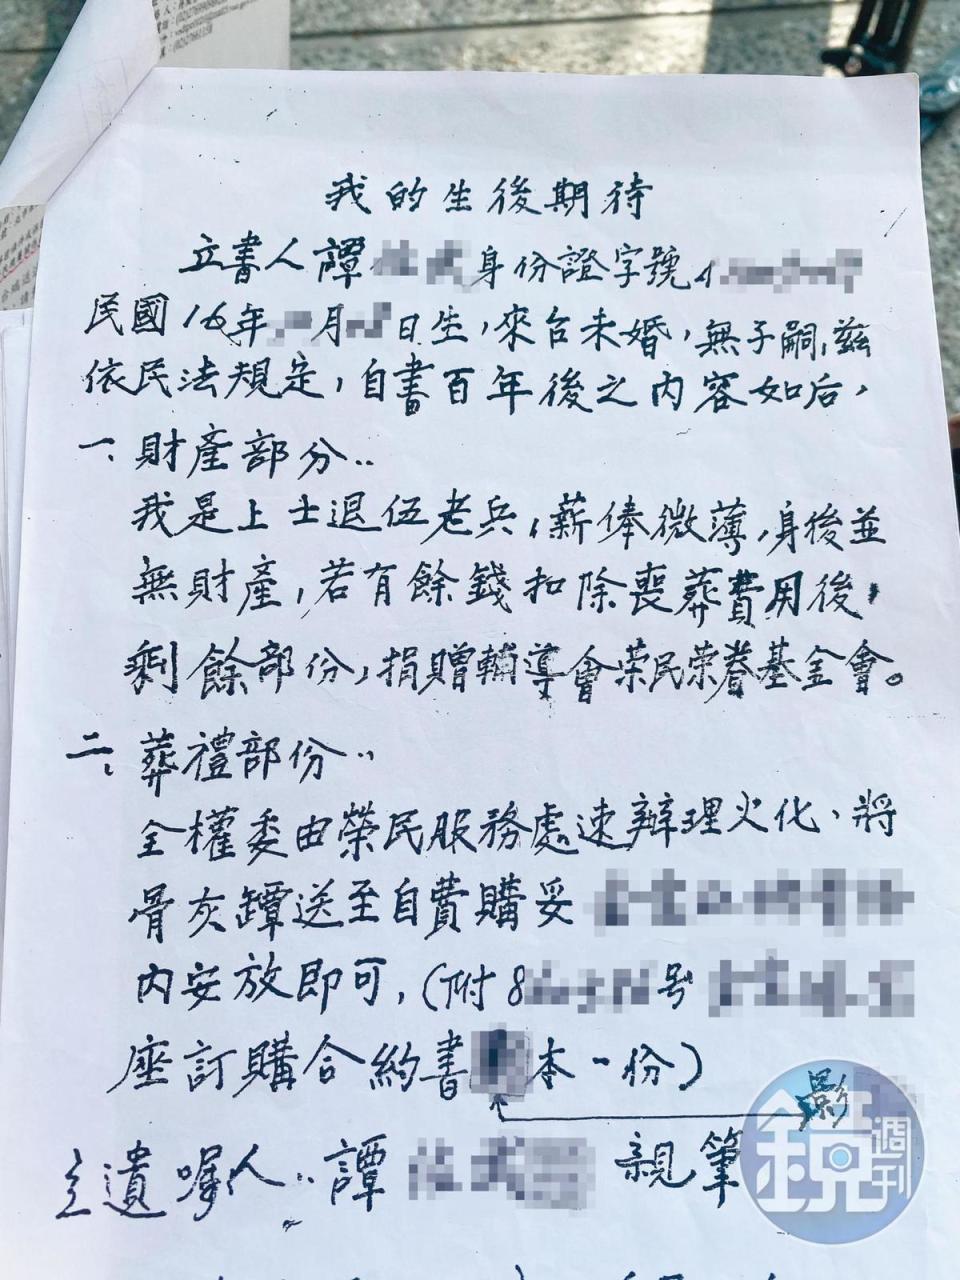 我的生後期待
立書人譚 身份證字號
民國16年 月 日生，來台未婚，無子嗣，茲
依民法規定，自書百年後之內容如后，
一、財產部分：
我是上士退伍老兵，薪俸微薄，身後並
無財產，若有餘錢扣除喪葬費用後，
剩餘部份，捐贈輔導會榮民榮眷基金會。
二、葬禮部份：
全權委由榮民服務處速辦理火化、將
骨灰罈送至自費購妥
內安放即可，(附8 号
座訂購合約書 本一份)
影
立遺囑人：譚 親筆
鏡週刊